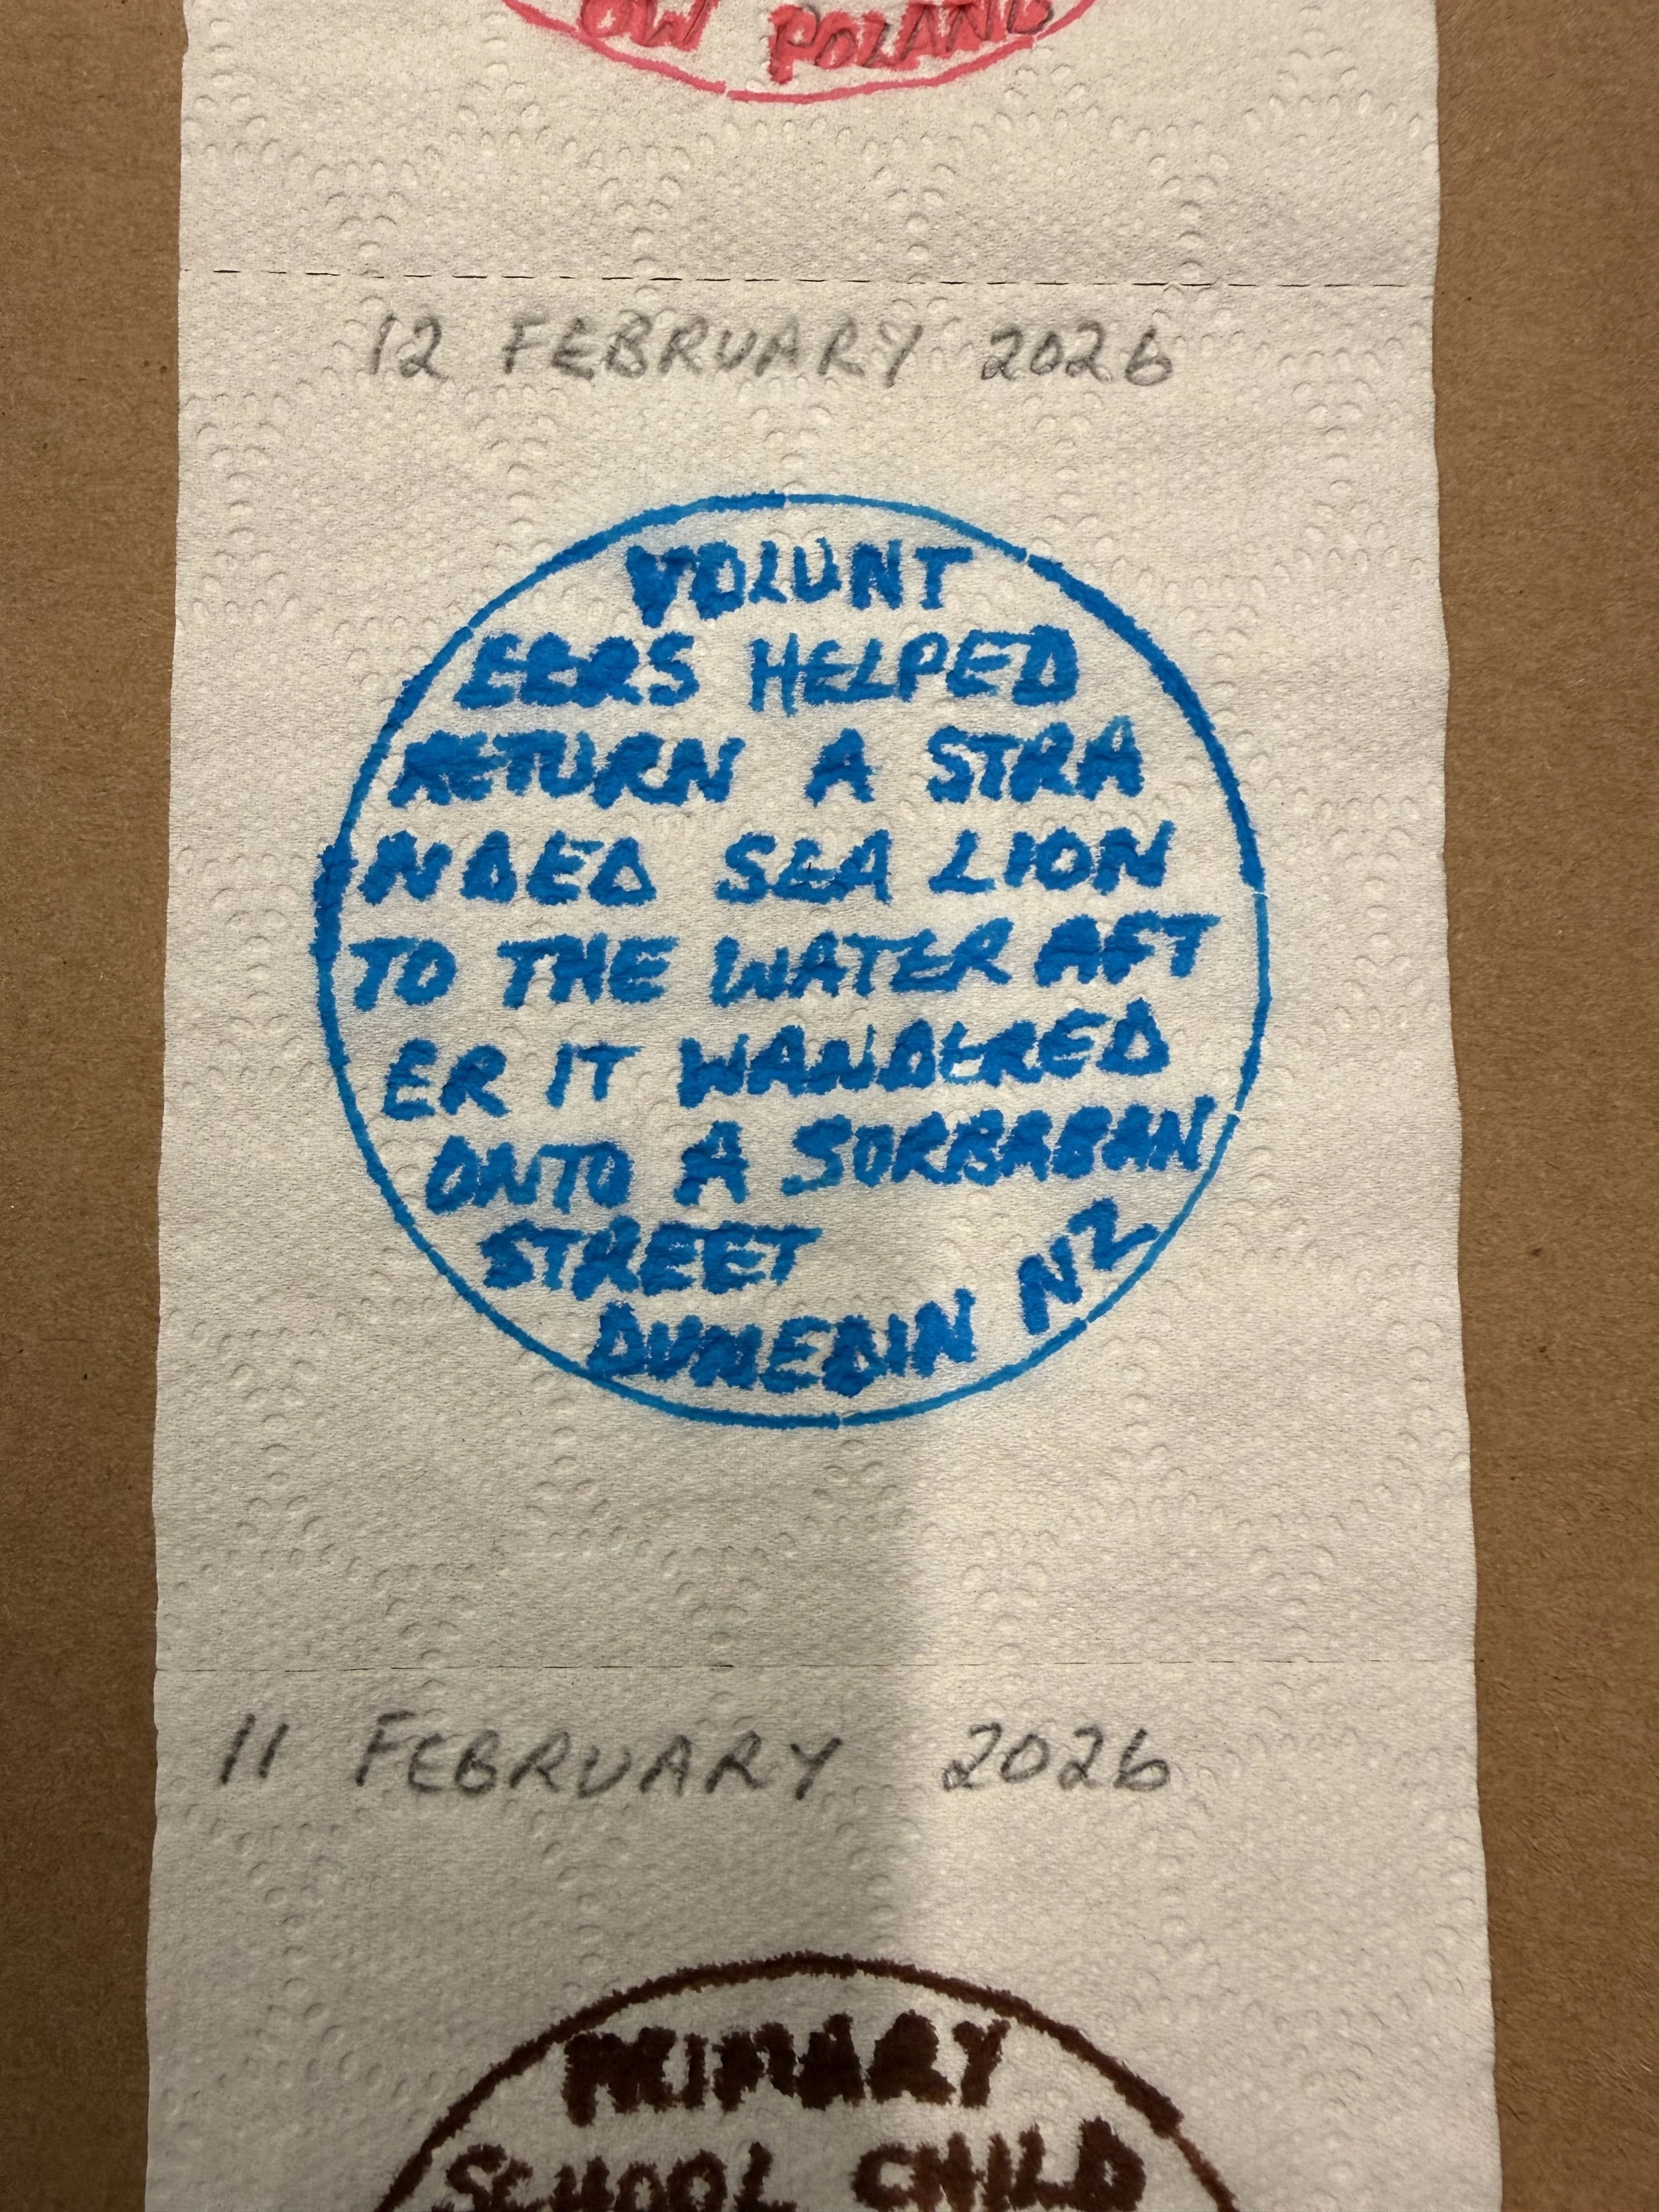 OW POLAND
12 FEBRUARY 2026
VOLUNT
EERS HELPED
RETURN A STRA
NDED SEA LION
TO THE WATER AFT
ER IT WANDERED
ONTO A SURBABAN
STREET
DUNEDIN NZ
11 FEBRUARY 2026
PRIMARY
SCHOOL CHILD